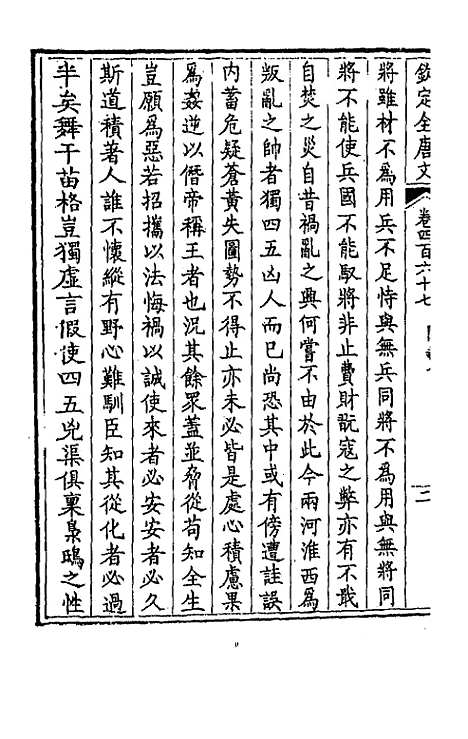 欽定全唐文 卷四百六十七 二
將雖材不為用兵不足恃與無兵同將不為用與無將同
將不能使兵國不能馭將非止費財翫寇之弊亦有不戢
自焚之災自昔禍亂之興何嘗不由於此今兩河淮西為
叛亂之帥者獨四五凶人而已尚恐其中或有傍遭詿誤
內蓄危疑蒼黃失圖勢不得止亦未必皆是處心積慮果
為姦逆以僭帝稱王者也況其餘眾蓋並脅從苟知全生
豈願為惡若招攜以法悔禍以誠使來者必安安者必久
斯道積著人誰不懷縱有野心難馴臣知其從化者必過
半矣舞干苗格豈獨虛言假使四五兇渠俱稟梟鴟之性